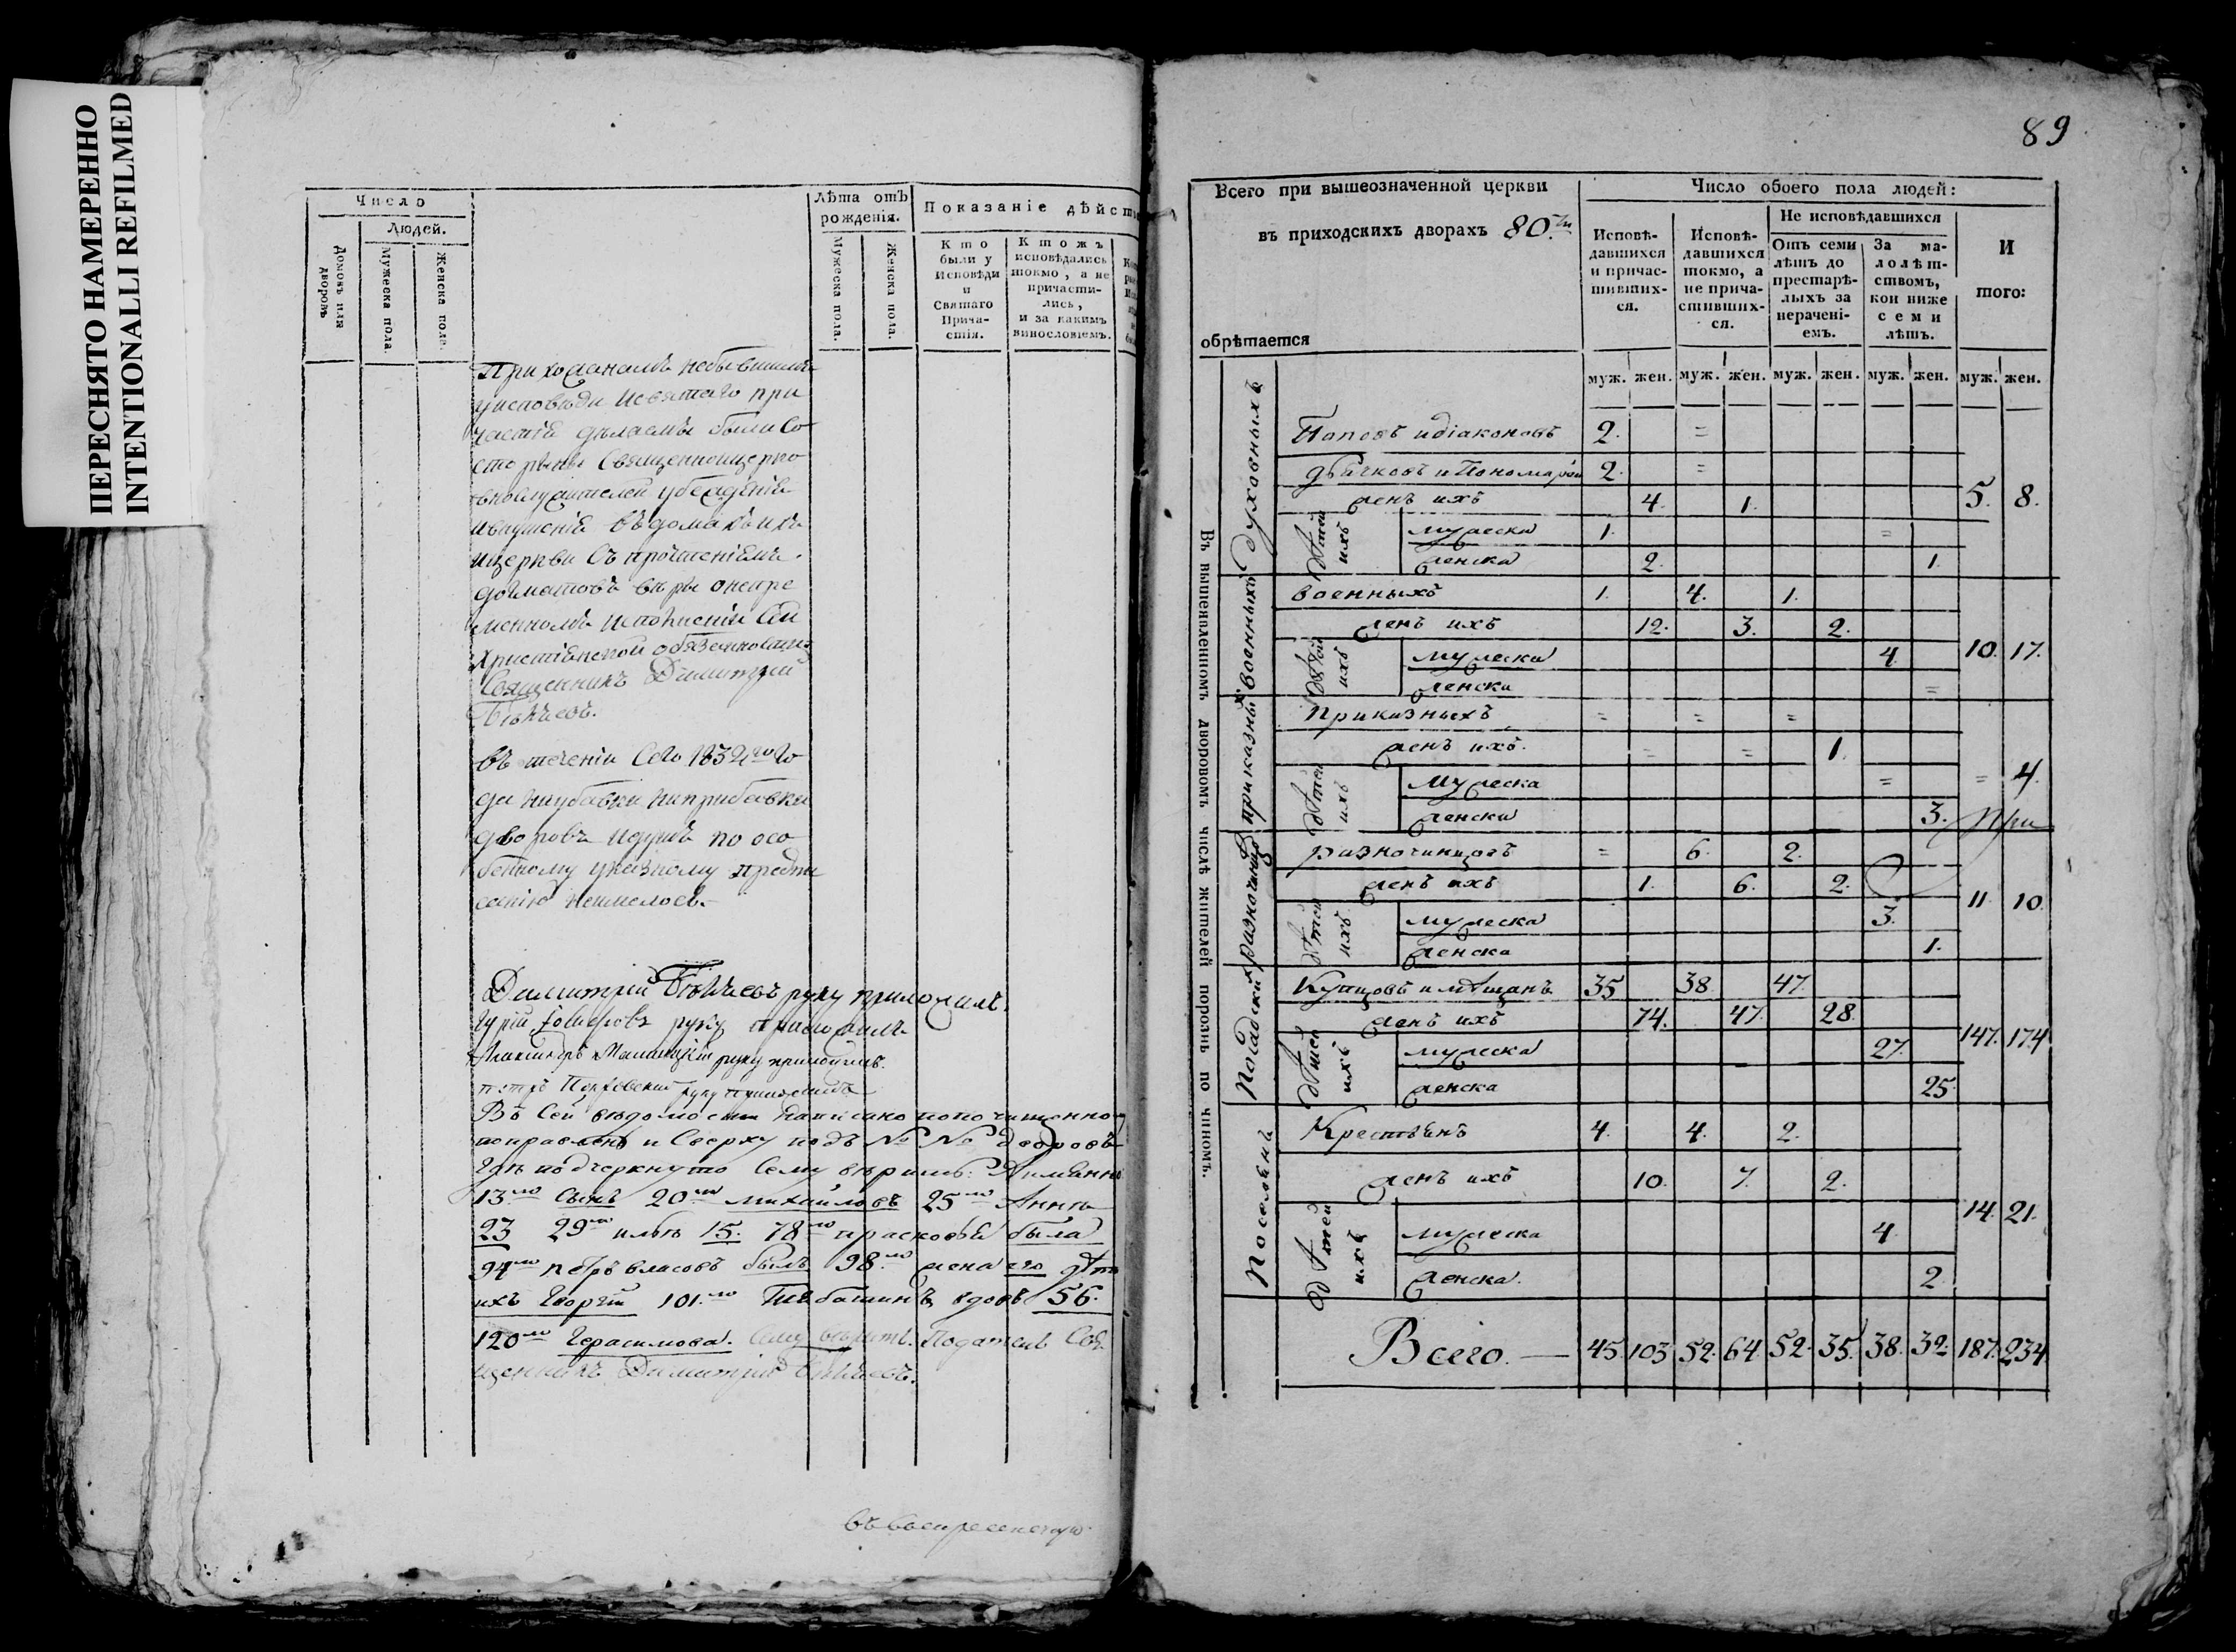 ПЕРЕСНЯТО НАМЕРЕННО
INTENTIONALLI REFILMED
Число
Людей.
домовъ или дворовъ
Мужеска пола.
Женска пола.
Лѣта отъ рожденія.
Мужеска пола.
Женска пола.
Показаніе дѣйст
Кто были у Исповѣди и Святаго Прича-стія.
Кто жъ исповѣдались токмо, а не причасти-лись, и за какимъ винословіемъ.
Приходанамъ небывшимъ
уисповѣди исвятаго при
частія дѣлаемы были со
стороны священноицерко
внослужителей убежденія
ивнушенія въ домахъ ихъ
ицеркви съ прочтеніемъ
догматовъ вѣры онепре
менномъ исполненіи сей
христіянской обязанности
Священникъ Димитрій
въ теченіи сего 1832го го
да ниубавки ниприбавки
дворовъ идушъ по осо
бенному указному предпи
санію неимелось.
Димитрій руку приложилъ.
Гурій руку приложилъ
руку приложилъ.
петръ руку приложилъ
Въ сей вѣдомости написано попочищенно
поправлено и сверху подъ № № дворовъ
гдѣ подчеркнуто сему вѣрить: Аимянно
13мъ сынъ 20мъ михайловъ 25мъ Анна
23 29мъ 15. 78мъ прасковья была
94мъ петръ власовъ былъ 98мъ жена его дѣти
ихъ Георгій 101.мъ вдова 56.
120мъ Герасимова. Сему верить. Податель Свя
щенникъ Димитрій
89
Всего при вышеозначенной церкви
въ приходскихъ дворахъ 80.ти
обрѣтается
Число обоего пола людей:
Исповѣ-давшихся и причас-тивших-ся.
Исповѣ-давшихся токмо, а не прича-стивших-ся.
Не исповѣдавшихся
Отъ семи лѣтъ до престарѣ-лыхъ за нерачені-емъ.
За ма-лолѣт-ствомъ, кои ниже семи лѣтъ.
И того:
муж. жен. муж. жен. муж. жен. муж. жен. муж. жен.
Въ вышеноленномъ дворовомъ числѣ жителей порознь по чиномъ.
Духовныхъ
Поповъ идіаконовъ 2. =
дьячковъ и Пономарей 2. =
женъ ихъ 4. 1. 5. 8.
Дѣтей ихъ
мужеска 1. =
женска 2. 1
военныхъ
военныхъ 1. 4. 1.
женъ ихъ 12. 3. 2.
дѣтей ихъ
мужеска 4 10. 17.
женска =
приказныхъ
приказныхъ = = =
женъ ихъ. = = 1.
дѣтей ихъ
мужеска = = 4.
женска 3.
При
Разночинцовъ
разночинцовъ = 6. 2.
женъ ихъ 1. 6. 2.
дѣтей ихъ
мужеска 3. 11 10.
женска 1.
Посадскихъ
Купцовъ и мѣщанъ 35 38 47
женъ ихъ 74. 47. 28.
дѣтей ихъ
мужеска 27. 147. 174
женска 25.
Поселянъ
Крестьянъ 4. 4. 2.
женъ ихъ 10. 7. 2.
дѣтей ихъ
мужеска 4. 14. 21.
женска. 2
Всего. — 45. 103 52. 64. 52. 35. 38. 32. 187. 234